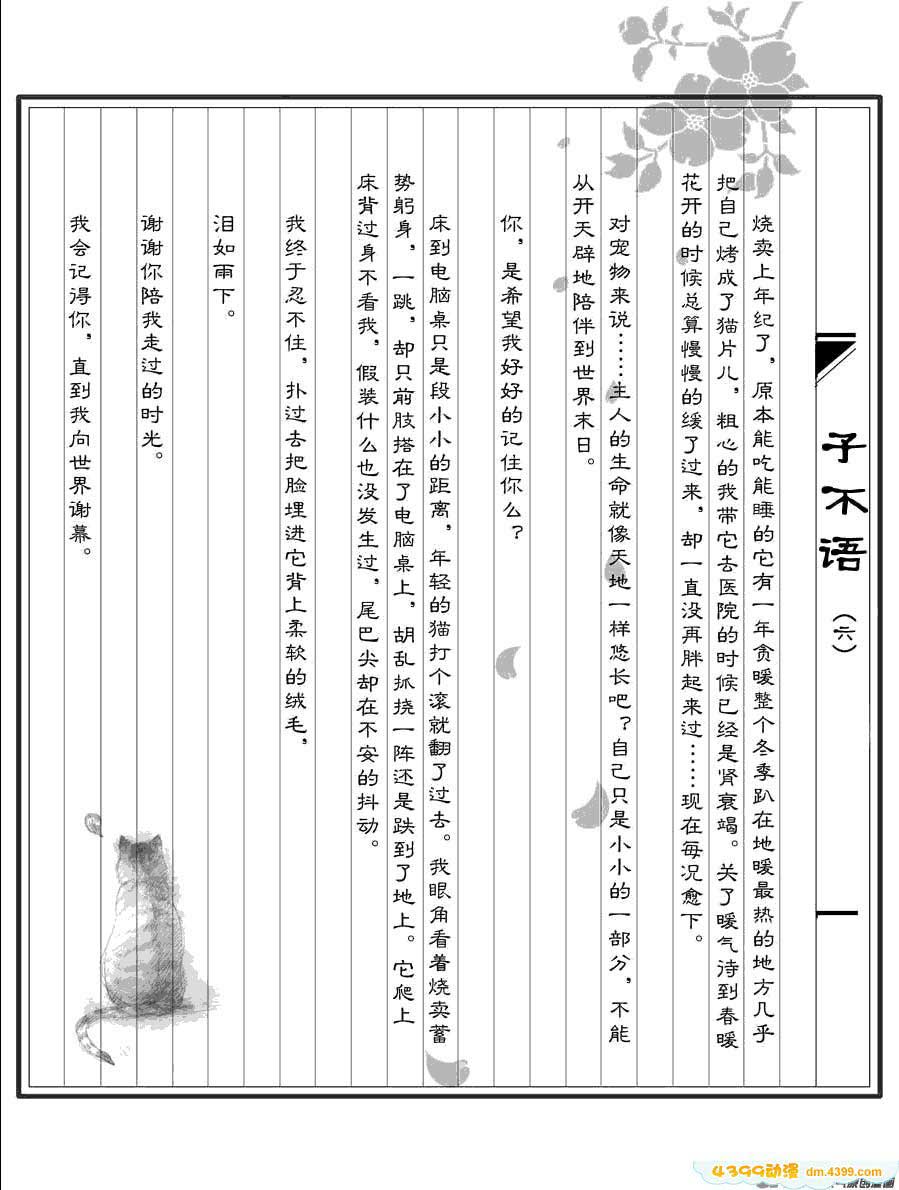 子不语
（六）
烧卖上年纪了，原本能吃能睡的它有一年贪暖整个冬季趴在地暖最热的地方几乎
把自己烤成了猫片儿，粗心的我带它去医院的时候已经是肾衰竭。关了暖气待到春暖
花开的时候总算慢慢的缓了过来，却一直没再胖起来过……现在每况愈下。
对宠物来说……主人的生命就像天地一样悠长吧？自己只是小小的一部分，不能
从开天辟地陪伴到世界末日。
你，是希望我好好的记住你么？
床到电脑桌只是段小小的距离，年轻的猫打个滚就翻了过去。我眼角看着烧卖蓄
势躬身，一跳，却只前肢搭在了电脑桌上，胡乱抓挠一阵还是跌到了地上。它爬上
床背过身不看我，假装什么也没发生过，尾巴尖却在不安的抖动。
我终于忍不住，扑过去把脸埋进它背上柔软的绒毛，
泪如雨下。
谢谢你陪我走过的时光。
我会记得你，直到我向世界谢幕。
4399动漫 dm.4399.com